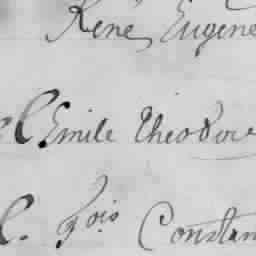 René Eugène
C. Emile Théodore
C. Fois Constan